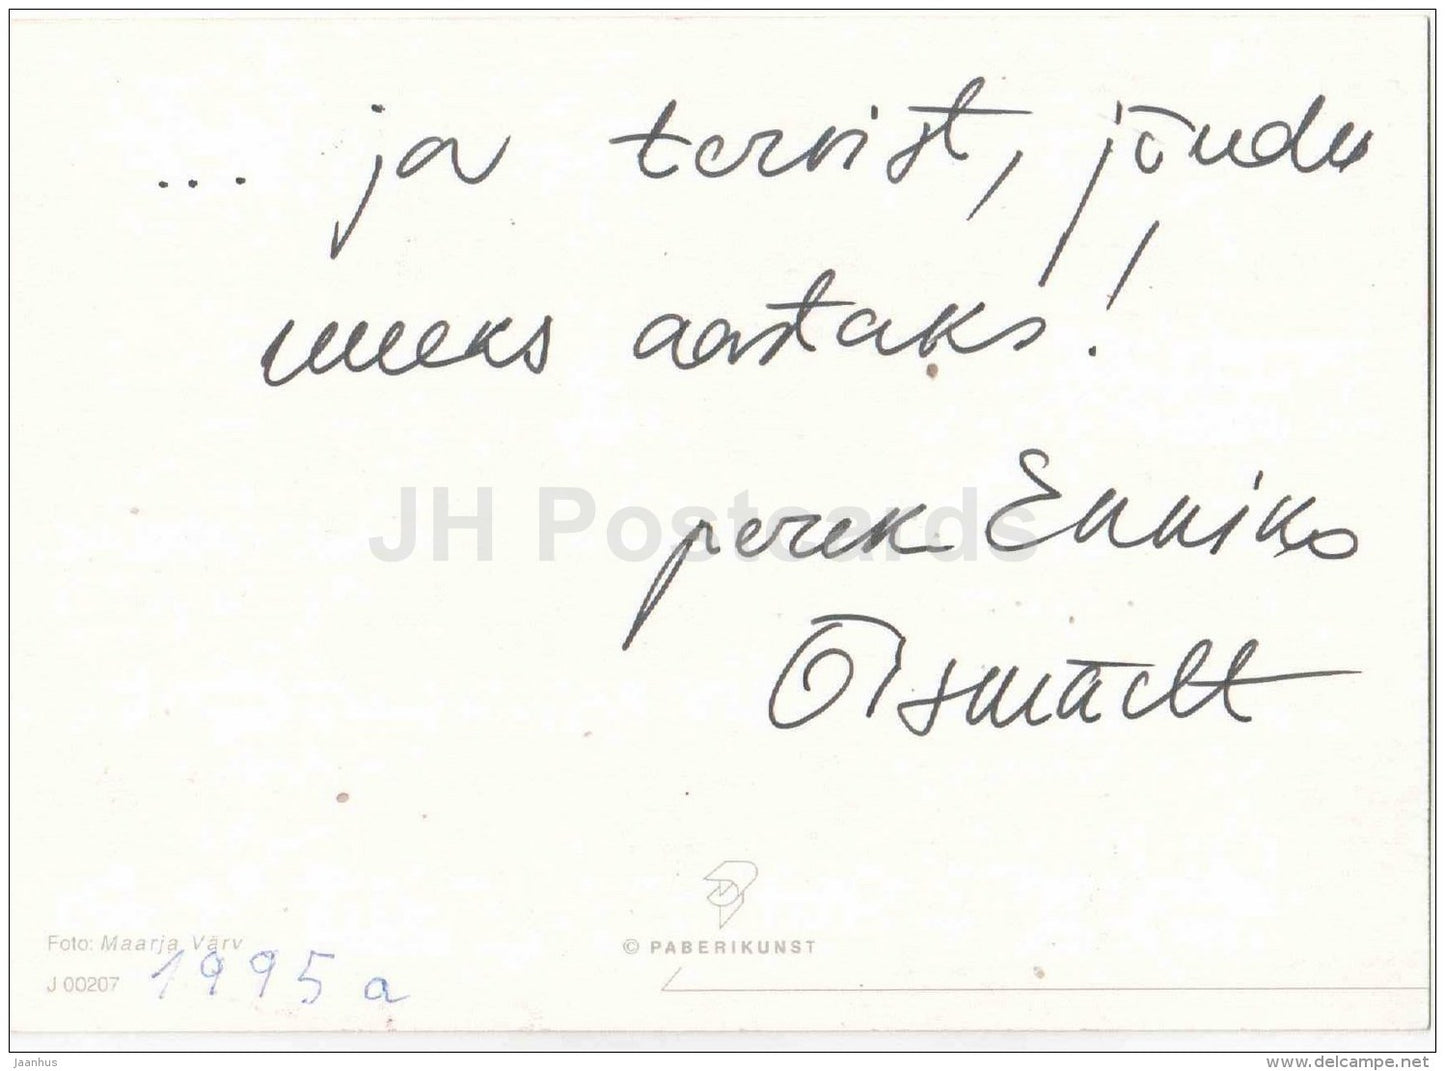 ... ja tervist, jõudu
uueks aastaks!
perek. Enniko
JH Postcards
Foto: Maarja Värv
J 00207
1995 a
© PABERIKUNST
jaanhus
www.delcampe.net